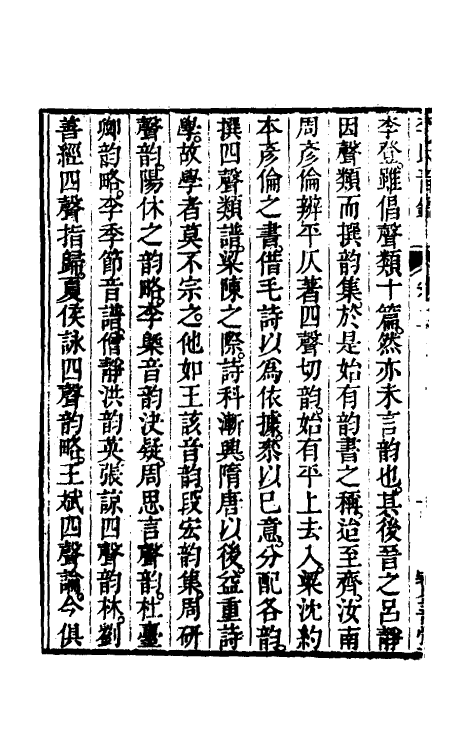 李登雖倡聲類十篇然亦未言韵也其後晉之呂靜
因聲類而撰韵集於是始有韵書之稱迨至齊汝南
周彥倫辨平仄著四聲切韵始有平上去入梁沈約
本彥倫之書借毛詩以為依據叅以已意分配各韵
撰四聲類譜梁陳之際詩科漸興隋唐以後益重詩
學故學者莫不宗之他如王該音韵段宏韵集周研
聲韵陽休之韵略李槩音韵決疑周思言聲韵杜臺
卿韵略李季節音譜僧靜洪韵英張諒四聲韵林劉
善經四聲指歸夏侯詠四聲韵略王斌四聲論今俱